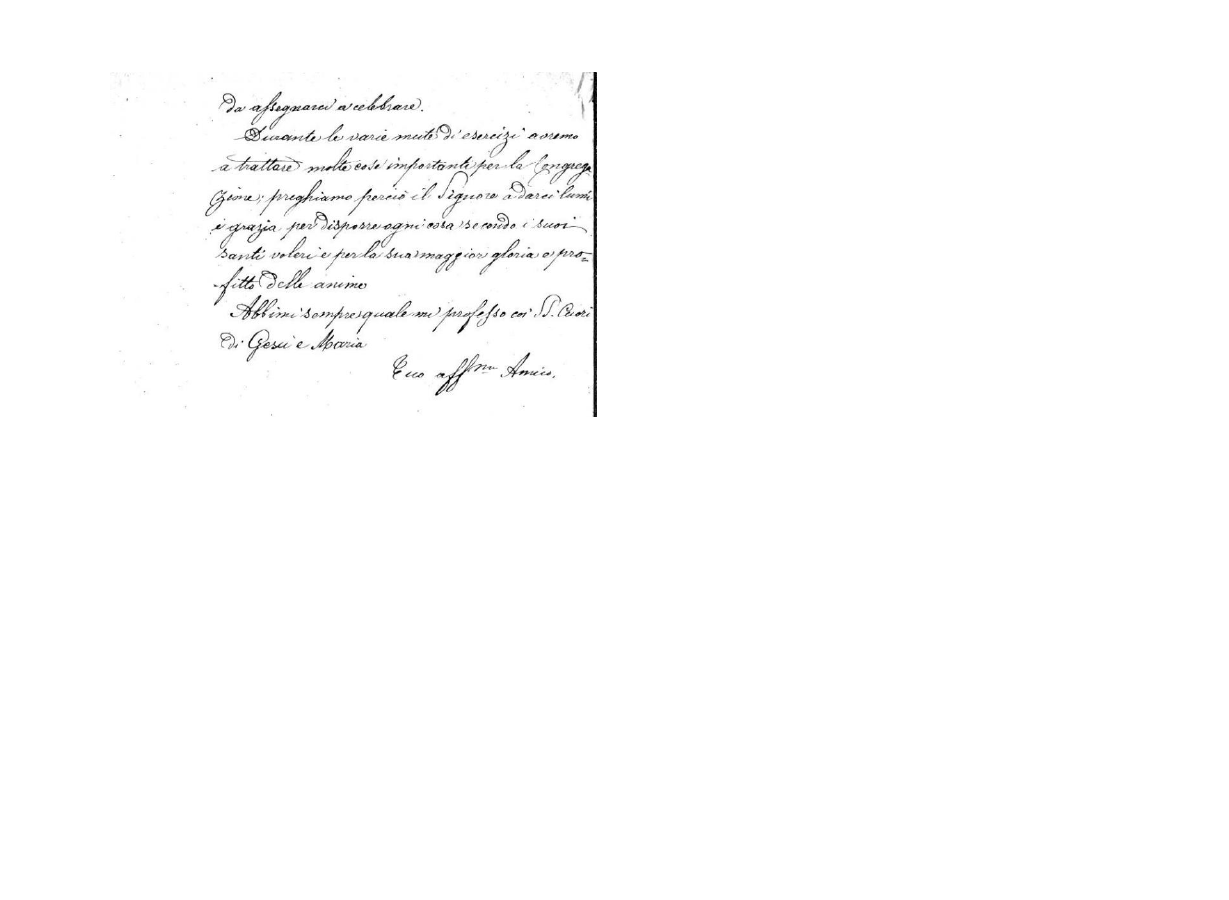 da assegnarci a celebrare.
Durante le varie mute di esercizi avremo
a trattare molte cose importanti per la Congrega
zione; preghiamo perciò il Signore a darci lumi
e grazia per disporre ogni cosa secondo i suoi
santi voleri e per la sua maggior gloria e pro=
fitto delle anime
Abbimi sempre quale mi professo coi SS. Cuori
di Gesù e Maria
Tuo affmo Amico.